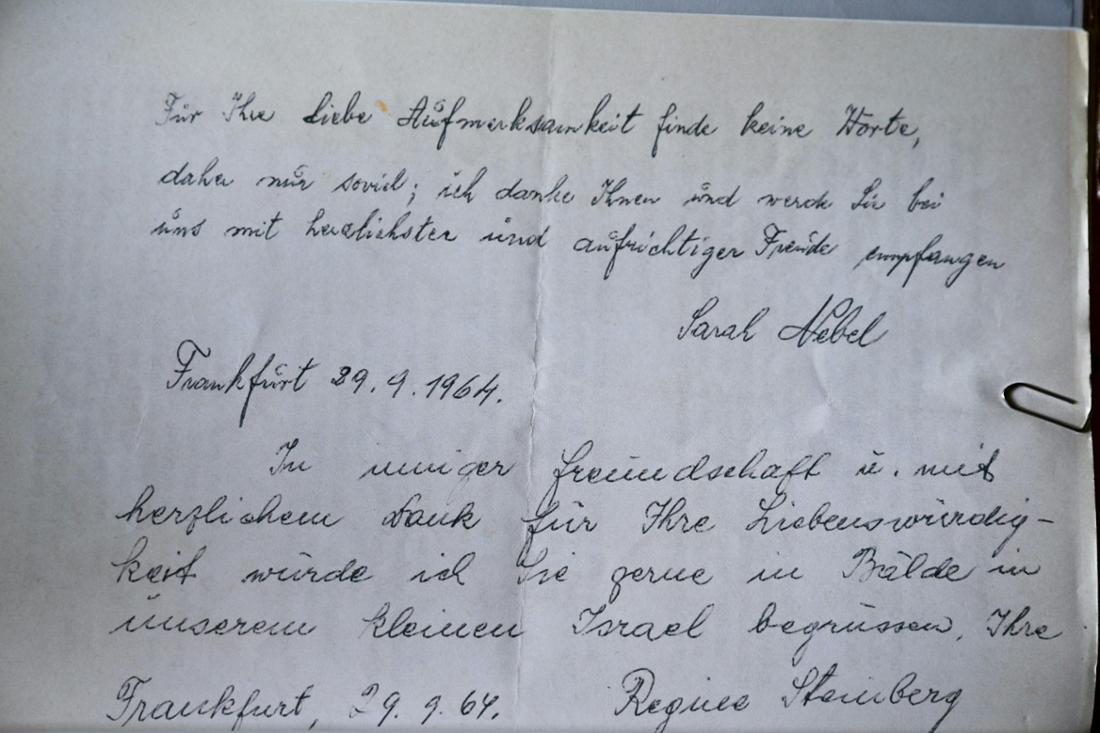 Für Ihre liebe Aufmerksamkeit finde keine Worte,
daher nur soviel; ich danke Ihnen und werde Sie bei
uns mit herzlichster und aufrichtiger Freude empfangen
Sarah Nebel
Frankfurt 29.9.1964.
In inniger freundschaft u. mit
herzlichem Dank für Ihre Liebenswürdig-
keit würde ich Sie gerne in Bälde in
unserem kleinen Israel begrüssen, Ihre
Frankfurt, 29.9.64. Regine Steinberg